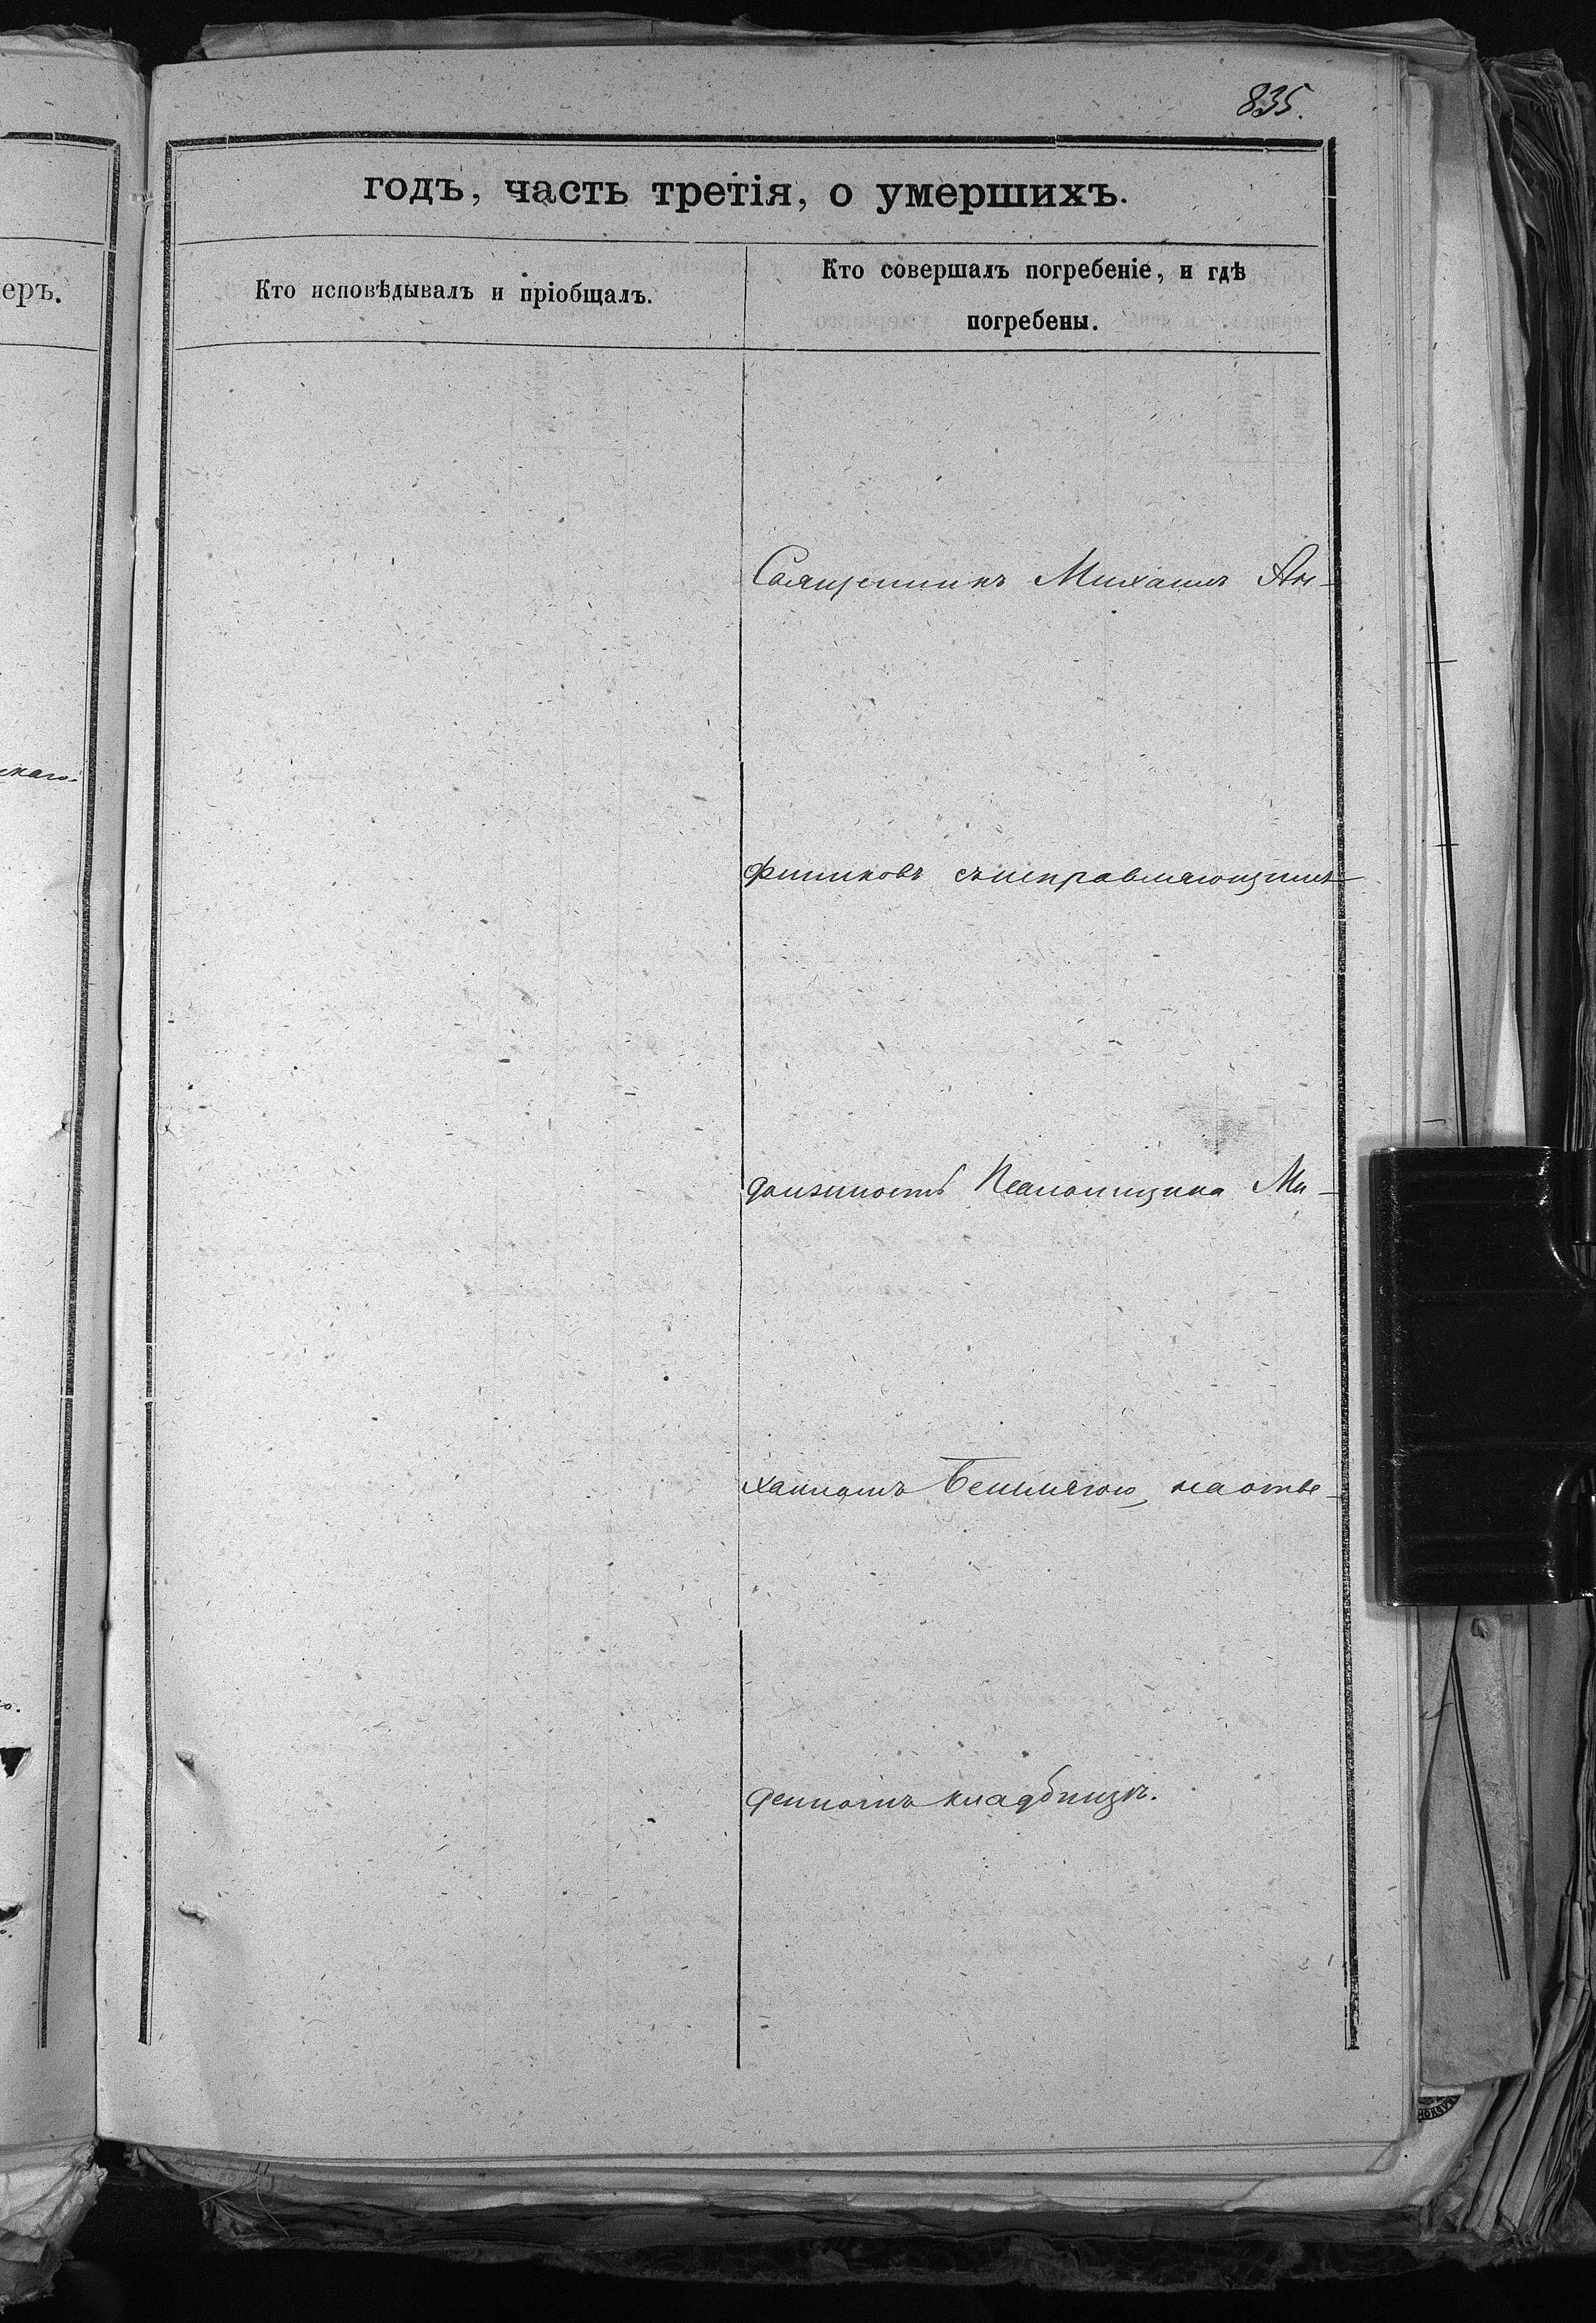 835.
годъ, часть третія, о умершихъ.
еръ.
Кто исповѣдывалъ и пріобщалъ.
Кто совершалъ погребеніе, и гдѣ
погребены.
Священникъ Михаилъ Ан-
финновъ съ исправляющимъ
должность Псаломщика Ми-
хаиломъ на отве-
денномъ кладбищѣ.